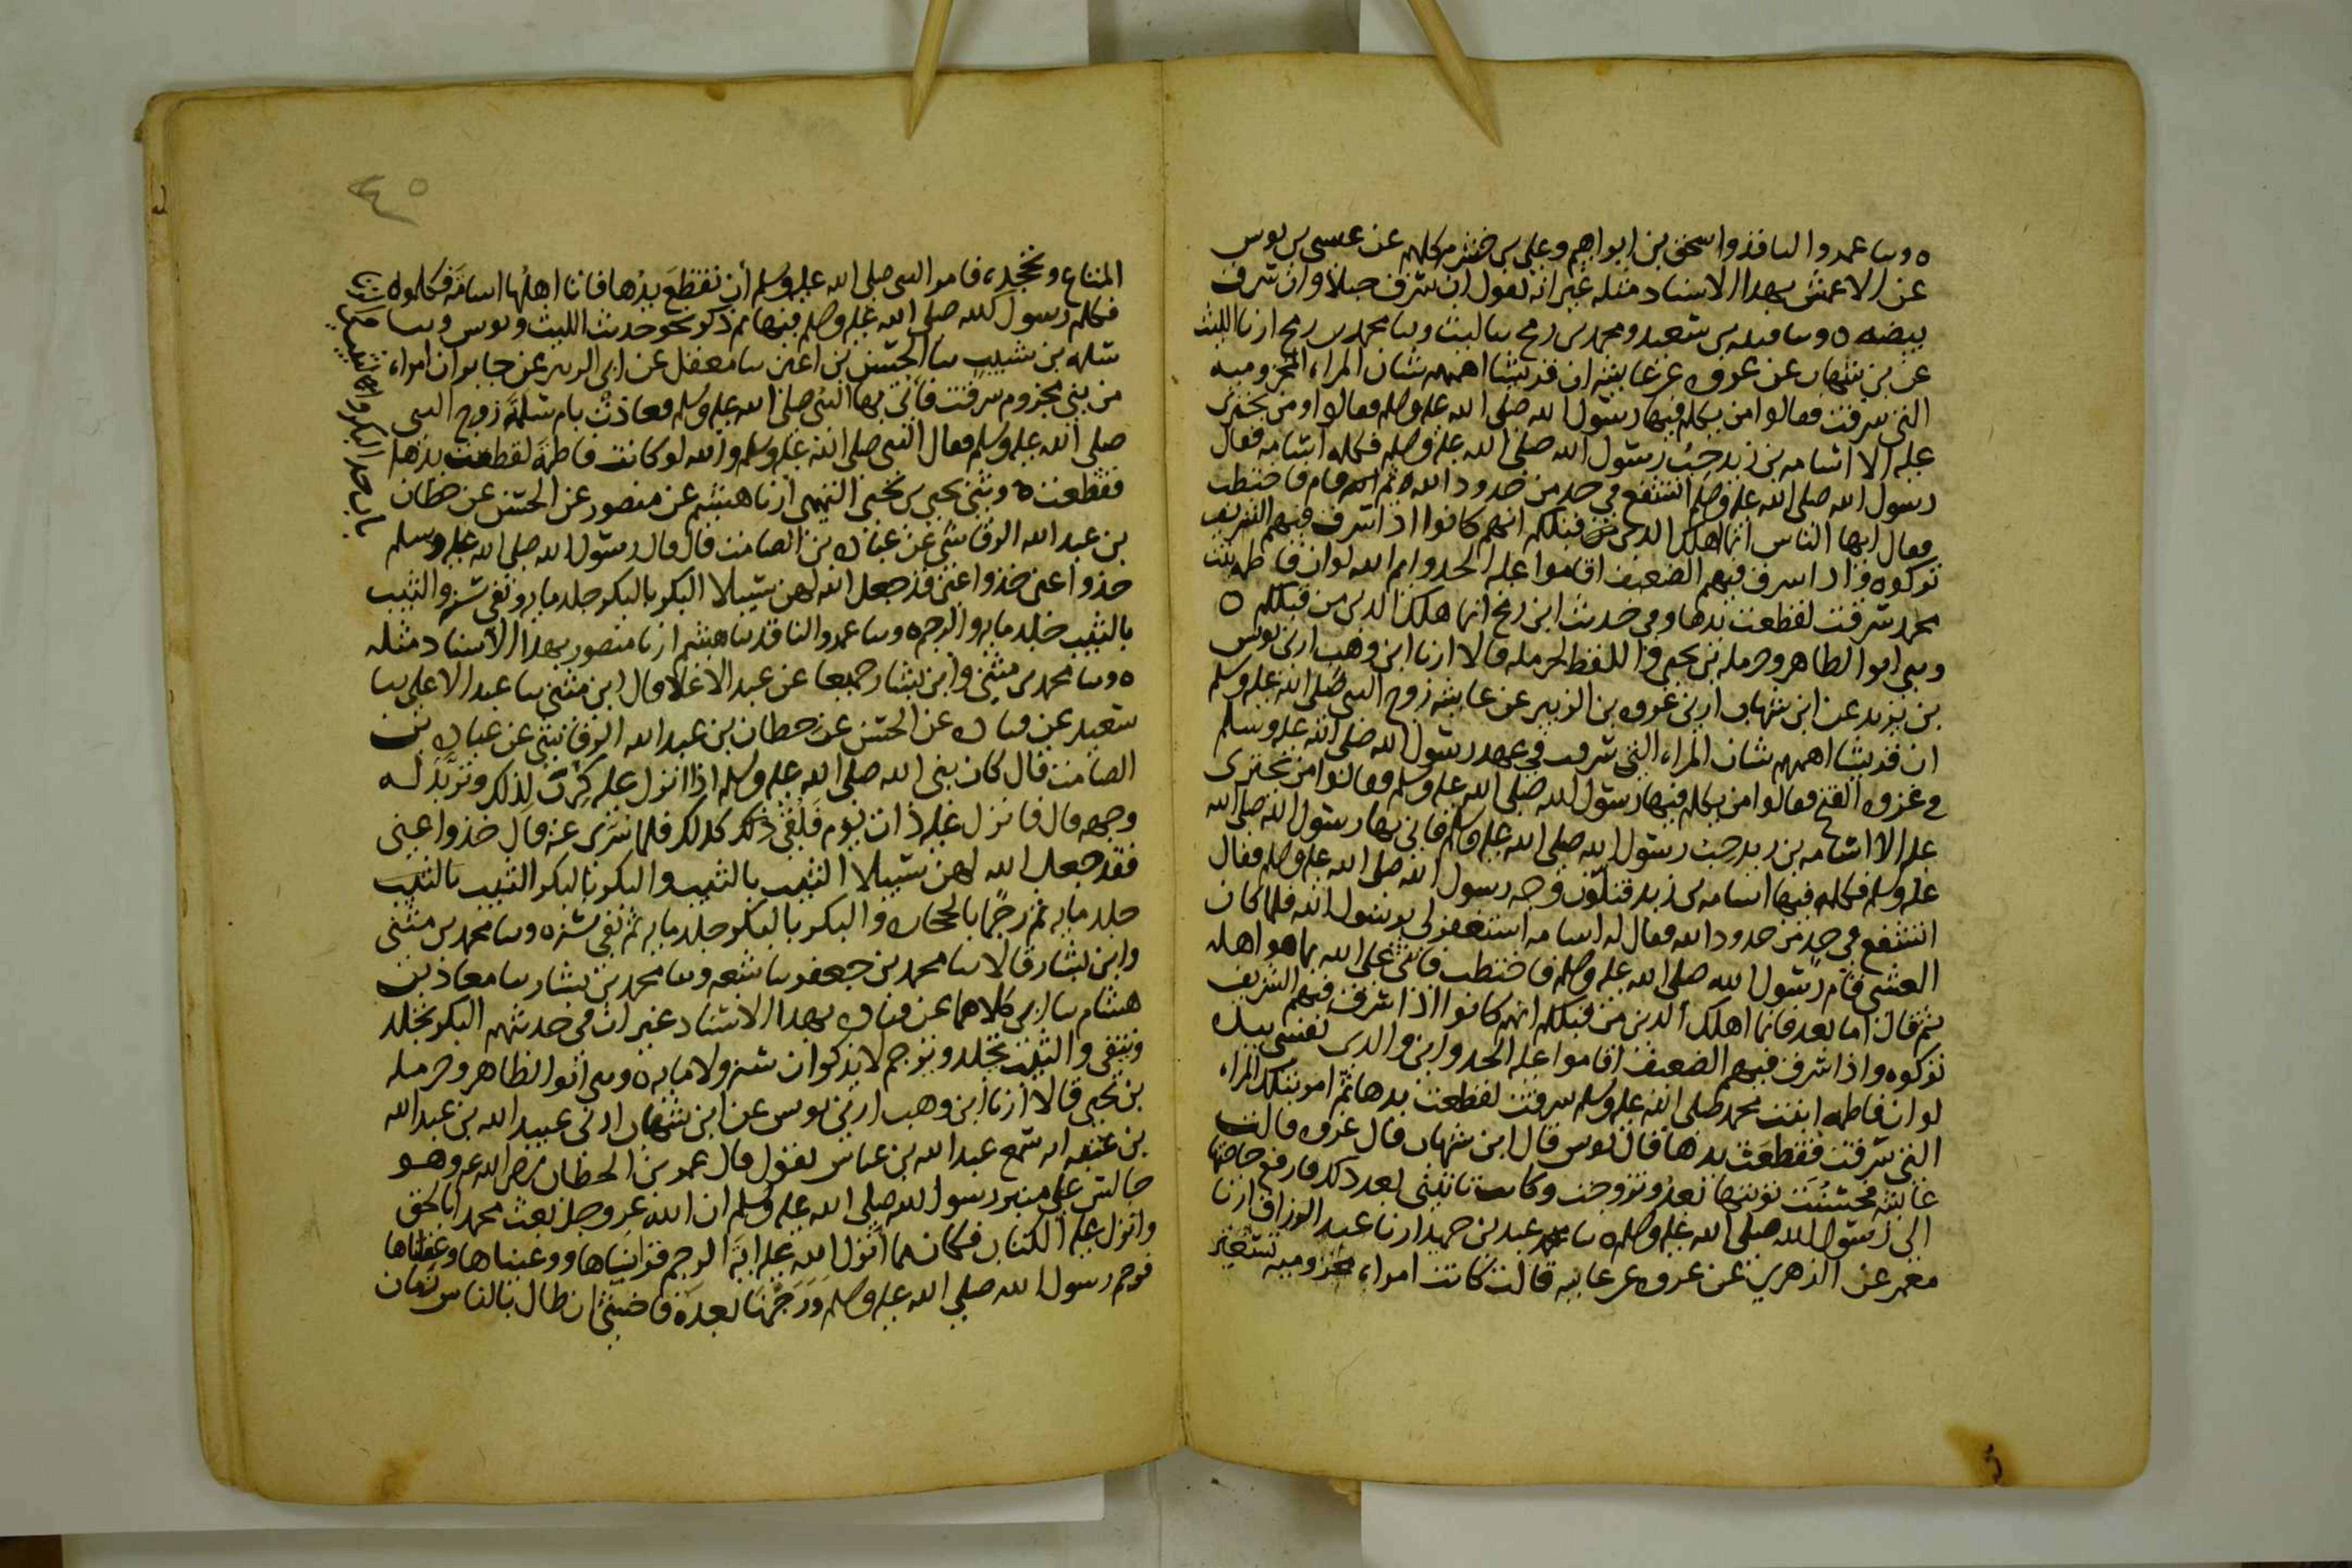 وسا عمرو الناقد واسحق بن ابراهيم وعلي بن خشرم كلهم عن عيسى بن يونس
عن الاعمش بهذا الاسناد مثله غير انه يقول ان سرق حبلا وان سرق
بيضه ٥ وسا قتيبه بن سعيد ومحمد بن رمح سا ليث وسا محمد بن رمح ارنا الليث
عن بن شهاب عن عروه عن عايشه ان قريشا اهمهم شان المراه المخزوميه
التي سرقت فقالوا من يكلم فيها رسول الله صلى الله عليه وسلم فقالوا ومن يجترى
عليه الا اسامه بن زيد حب رسول الله صلى الله عليه وسلم فكلمه اسامه فقال
رسول الله صلى الله عليه وسلم اتشفع في حد من حدود الله ثم قام فاختطب
فقال ايها الناس انما اهلك الذين من قبلكم انهم كانوا اذا سرق فيهم الشريف
تركوه واذا سرق فيهم الضعيف اقاموا عليه الحد وايم الله لو ان فاطمه بنت
محمد سرقت لقطعت يدها وفي حديث ابن رمح انما هلك الذين من قبلكم ٥
وسي ابو الطاهر وحرمله بن يحيى واللفظ لحرمله قالا ارنا ابن وهب ارني يونس
بن يزيد عن ابن شهاب ارني عروه بن الزبير عن عايشه زوج النبي صلى الله عليه وسلم
ان قريشا اهمهم شان المراه التي سرقت في عهد رسول الله صلى الله عليه وسلم
في غزوه الفتح فقالوا من يكلم فيها رسول الله صلى الله عليه وسلم فقالوا من يجترى
عليه الا اسامه بن زيد حب رسول الله صلى الله عليه وسلم فاتي بها رسول الله صلى الله
عليه وسلم فكلمه فيها اسامه بن زيد فتلون وجه رسول الله صلى الله عليه وسلم فقال
اتشفع في حد من حدود الله فقال له اسامه استغفر لي يرسول الله فلما كان
العشي قام رسول الله صلى الله عليه وسلم فاختطب فاثنى على الله بما هو اهله
ثم قال اما بعد فانما اهلك الذين من قبلكم انهم كانوا اذا سرق فيهم الشريف
تركوه واذا سرق فيهم الضعيف اقاموا عليه الحد واني والذي نفسي بيده
لو ان فاطمه ابنت محمد صلى الله عليه وسلم سرقت لقطعت يدها ثم امر بتلك المراه
التي سرقت فقطعت يدها قال يونس قال ابن شهاب قال عروه قالت
عايشه فحسنت توبتها بعد وتزوجت وكانت تاتيني بعد ذلك فارفع حاجتها
الى رسول الله صلى الله عليه وسلم ٥ سا عبد بن حميد ارنا عبد الرزاق ارنا
معمر عن الزهري عن عروه عن عايشه قالت كانت امراه مخزوميه تستعير
٤٥
المتاع وتجحده فامر النبي صلى الله عليه وسلم أن تقطع يدها فاتا اهلها اسامة فكلموه
فكلم رسول الله صلى الله عليه وسلم فيها ثم ذكر نحو حديث الليث ويونس وسا
سلمه بن شبيب سا الحسن بن اعين سا معقل عن ابي الزبير عن جابر ان امراه
من بني مخزوم سرقت فأتي بها النبي صلى الله عليه وسلم فعاذت بام سلمة زوج النبي
صلى الله عليه وسلم فقال النبي صلى الله عليه وسلم والله لو كانت فاطمة لقطعت يدها
فقطعت ٥ وثني يحيى بن يحيى التميمي ارنا هشيم عن منصور عن الحسن عن حطان
بن عبد الله الرقاشي عن عباده بن الصامت قال قال رسول الله صلى الله عليه وسلم
خذوا عني خذوا عني قد جعل الله لهن سبيلا البكر بالبكر جلد مايه ونفي سنه والثيب
بالثيب جلد مايه والرجم ٥ وسا عمرو الناقد سا هشيم ارنا منصور بهذا الاسناد مثله
٥ وسا محمد بن مثنى وابن بشار جميعا عن عبد الاعلا قال ابن مثنى سا عبد الاعلى سا
سعيد عن قتاده عن الحسن عن حطان بن عبد الله الرقاشي عن عباده بن
الصامت قال كان نبي الله صلى الله عليه وسلم اذا انزل عليه كرب لذلك وتربد له
وجهه قال فانزل عليه ذات يوم فلقي ذلك كذلك فلما سري عنه قال خذوا عني
فقد جعل الله لهن سبيلا الثيب بالثيب والبكر بالبكر الثيب بالثيب
جلد مايه ثم رجما بالحجاره والبكر بالبكر جلد مايه ثم نفي سنه ٥ وسا محمد بن مثنى
وابن بشار قالا سا محمد بن جعفر سا شعبه وسا محمد بن بشار سا معاذ بن
هشام سا ابي كلاهما عن قتاده بهذا الاسناد غير ان في حديثهم البكر يجلد
وينفى والثيب يجلد ويرجم لا يذكران سنه ولا مايه ٥ وسي ابو الطاهر وحرمله
بن يحيى قالا ارنا ابن وهب ارني يونس عن ابن شهاب ارني عبيد الله بن عبد الله
بن عتبه انه سمع عبد الله بن عباس يقول قال عمر بن الخطاب رضي الله عنه وهو
جالس على منبر رسول الله صلى الله عليه وسلم ان الله عز وجل بعث محمدا بالحق
وانزل عليه الكتاب فكان مما انزل الله عليه اية الرجم قراناها ووعيناها وعقلناها
فرجم رسول الله صلى الله عليه وسلم ورجمنا بعده فاخشى ان طال بالناس زمان
باب حد البكر والثيب